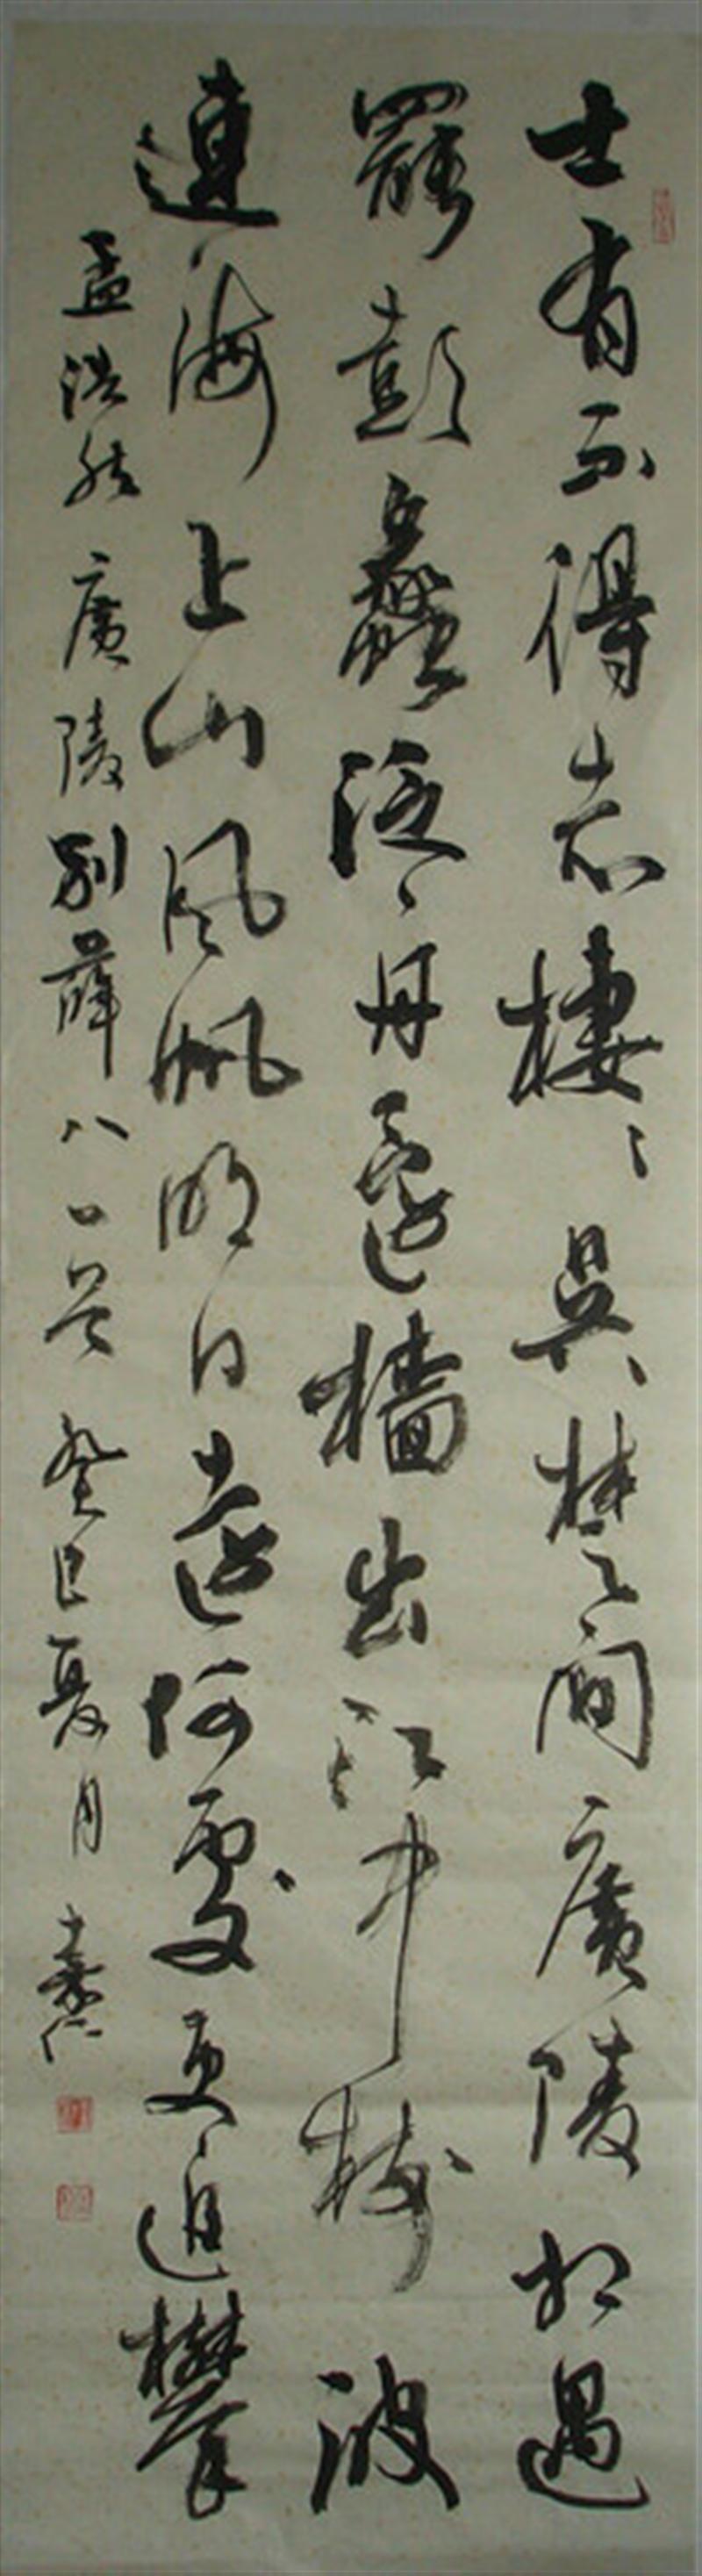 士有不得志棲〻吳楚間廣陵相遇
罷彭蠡泛舟還檣出江中樹波
連海上山風帆明日遠何處更追攀
孟浩然廣陵別薛八一首癸巳夏月